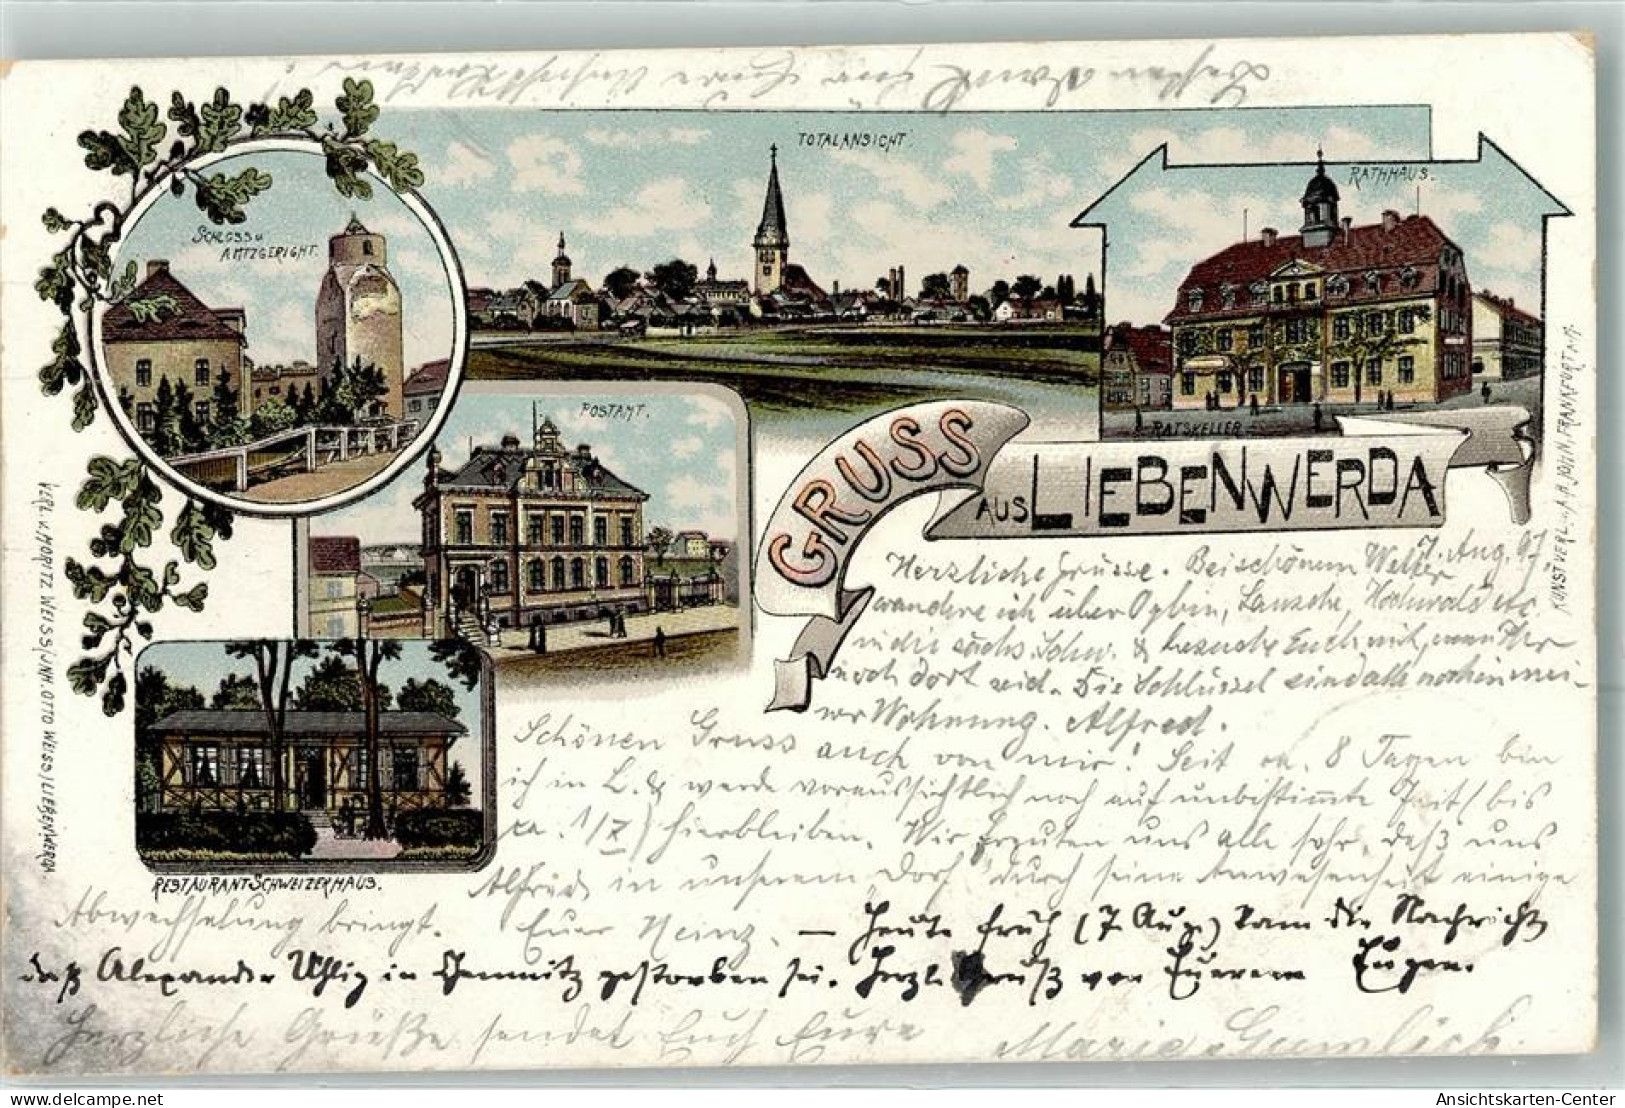 TOTALANSICHT.
RATHHAUS.
SCHLOSS U
AMTZGERIGHT.
POSTAMT.
RATSKELLER
GRUSS
AUS LIEBENWERDA
RESTAURANT-SCHWEIZERHAUS.
VERL. V. MORITZ WEISS/JNH. OTTO WEISS/LIEBENWERDA
KUNSTVERL. JOHN, FRANKFURT A/M.
7. Aug. 97.
Herzliche Grüsse. Bei schönem Wetter
wandere ich über Oybin, Lausche, Hochwald etc.
in die sächs. Schw. & besuche Euch mit, wenn Ihr
noch dort seid. Die Schlüssel sind alle noch in mei-
ner Wohnung. Alfred.
Schönen Gruss auch von mir! Seit ca. 8 Tagen bin
ich in L. & werde voraussichtlich noch auf unbestimmte Zeit (bis
ca. 1/X) hierbleiben. Wir freuten uns alle sehr, daß uns
Alfred in unserem "Dorf" durch seine Anwesenheit einige
Abwechselung bringt. Euer Heinz. — Heute früh (7. Aug.) kam die Nachricht
daß Alexander Uhlig in Chemnitz gestorben sei. Herzl. Gruß von Eurem Eugen.
Herzliche Grüße sendet Euch Eure Marie
Besten Dank für Eure Ansichtskarten!
Ansichtskarten-Center
delcampe.net